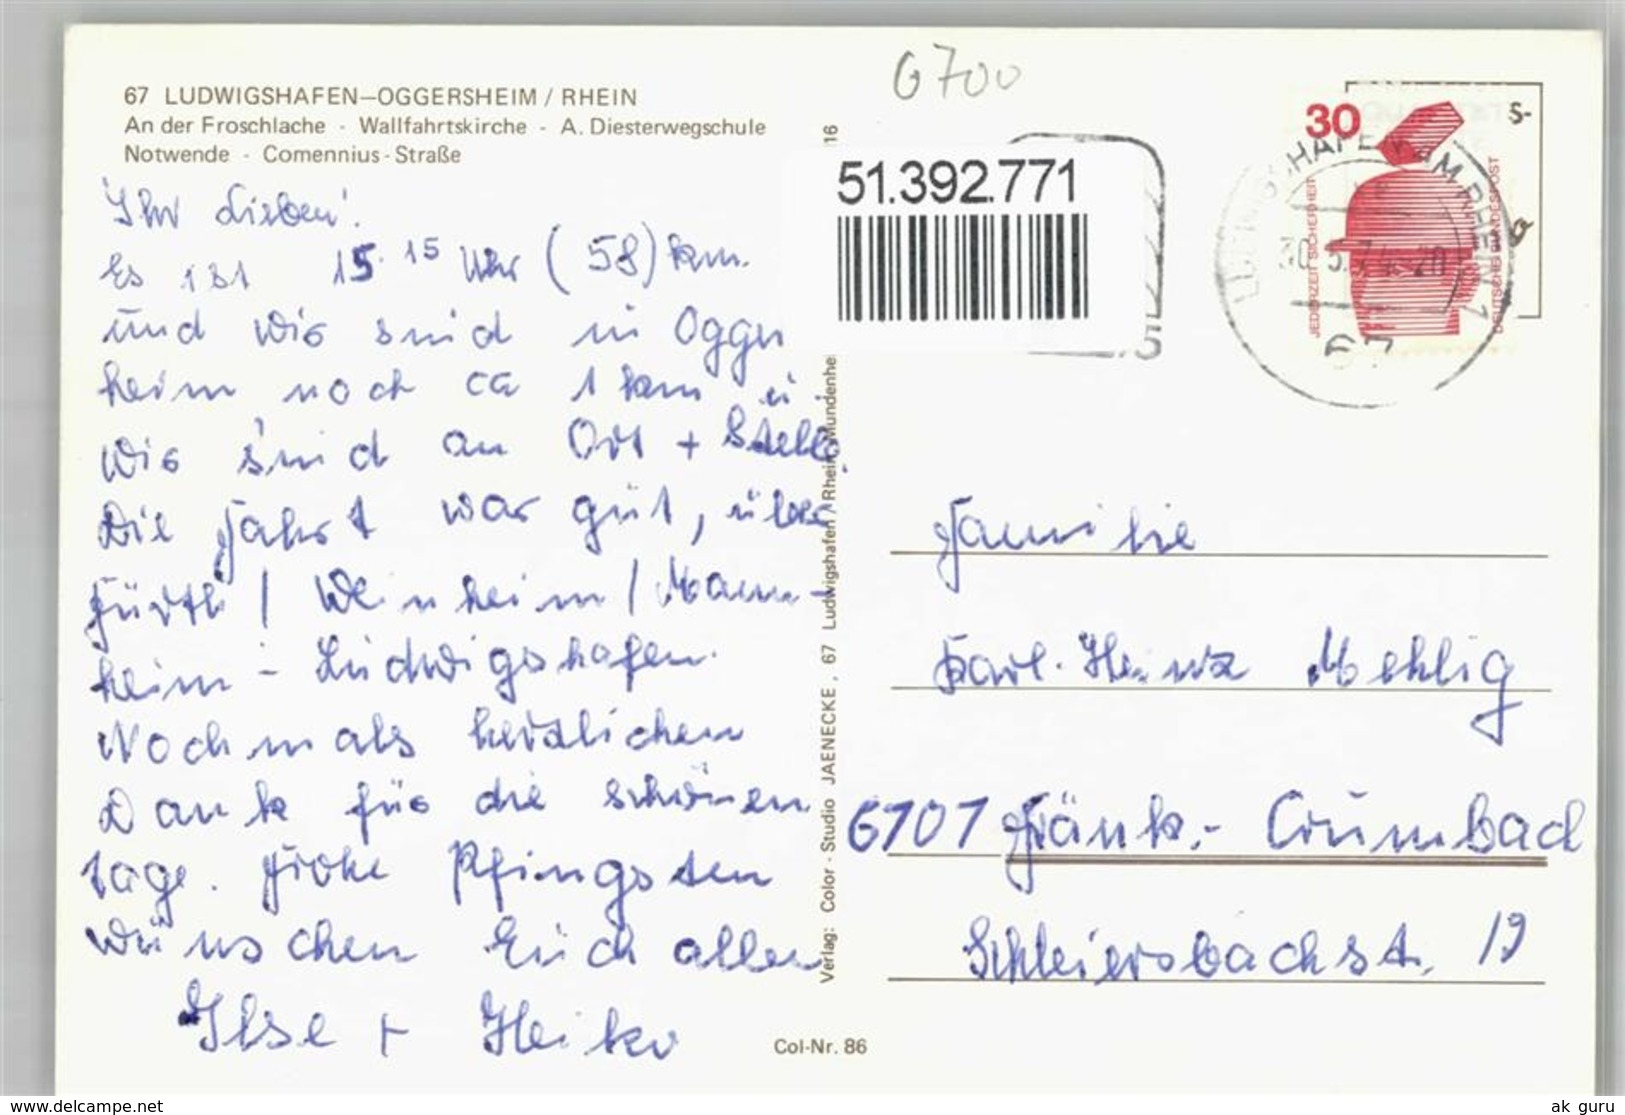 67 LUDWIGSHAFEN–OGGERSHEIM / RHEIN
An der Froschlache - Wallfahrtskirche - A. Diesterwegschule
Notwende - Comennius-Straße
Ihr Lieben!
Es ist 15.15 Uhr (58) km
und wir sind in Oggers
heim noch ca 1 km u
wir sind an Ort + Stelle.
Die Fahrt war gut, über
Fürth / Weinheim / Mann-
heim - Ludwigshafen.
Nochmals herzlichen
Dank für die schönen
Tage. Frohe Pfingsten
wünschen Euch allen
Ilse + Heiko
Verlag: Color - Studio JAENECKE, 67 Ludwigshafen / Rhein-Mundenhe
16
Col-Nr. 86
6700
51.392.771
30
JEDERZEIT SICHERHEIT
DEUTSCHE BUNDESPOST
LUDWIGSHAFEN AM RHEIN 1
30.5.74-20
67
S-
a
Familie
Karl-Heinz Mehlig
6101 Fränk.- Crumbach
Schleiersbachst. 19
www.delcampe.net
ak guru